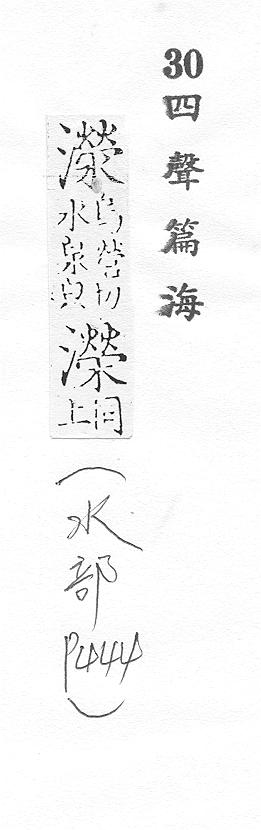 30
四聲篇海
濴
烏營切
水泉皃
濚
同
上
(水部
P444)